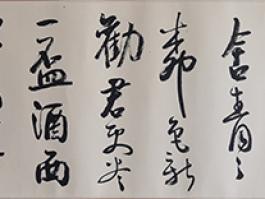 舍青々
柳色新
勸君更尽
一盃酒西